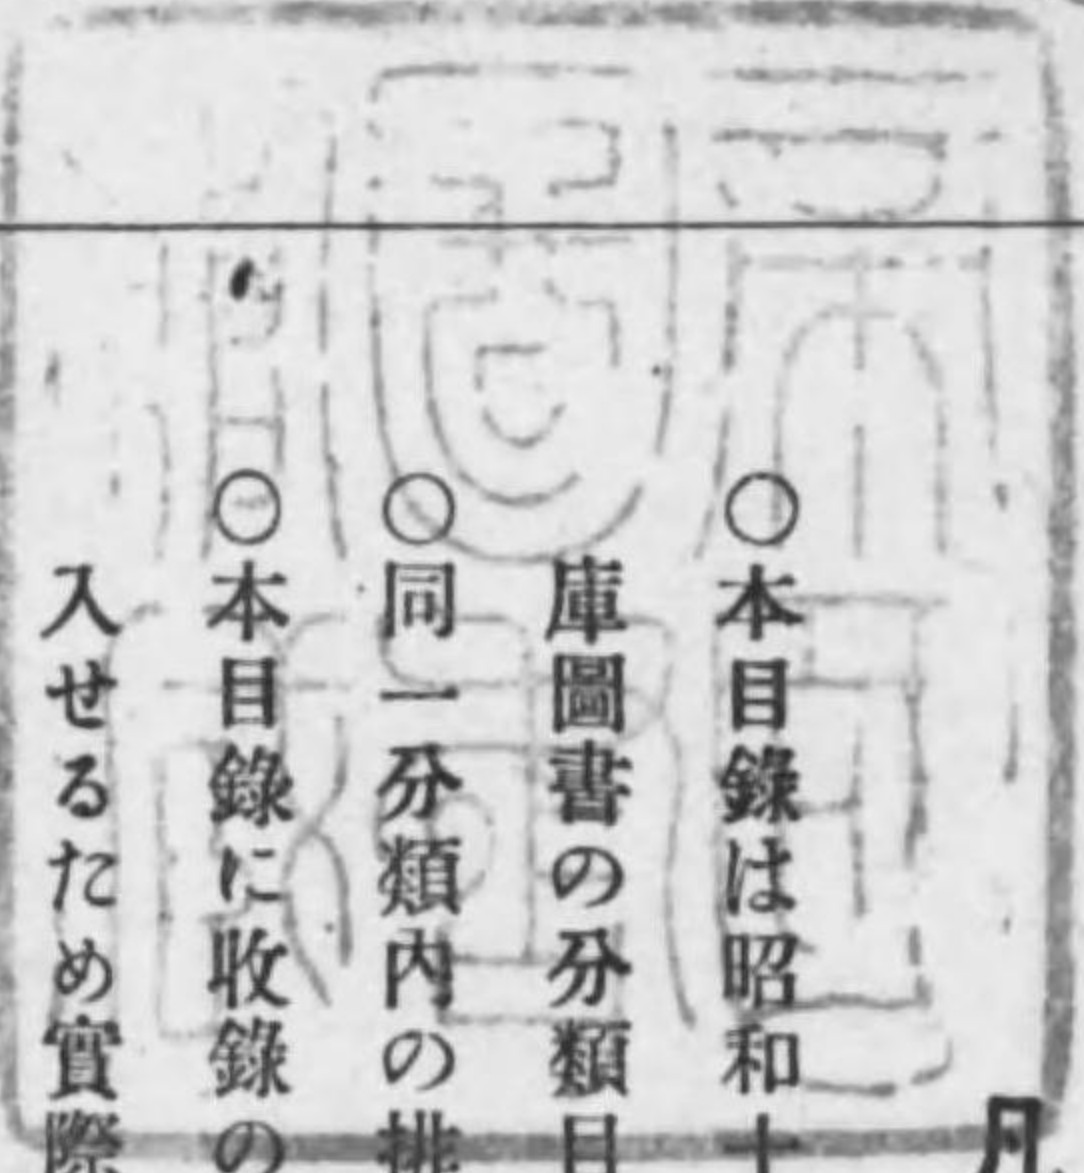 凡
○本目錄は昭和十
庫圖書の分類目
○同一分類內の排
○本目錄に收錄の
入せるため實際